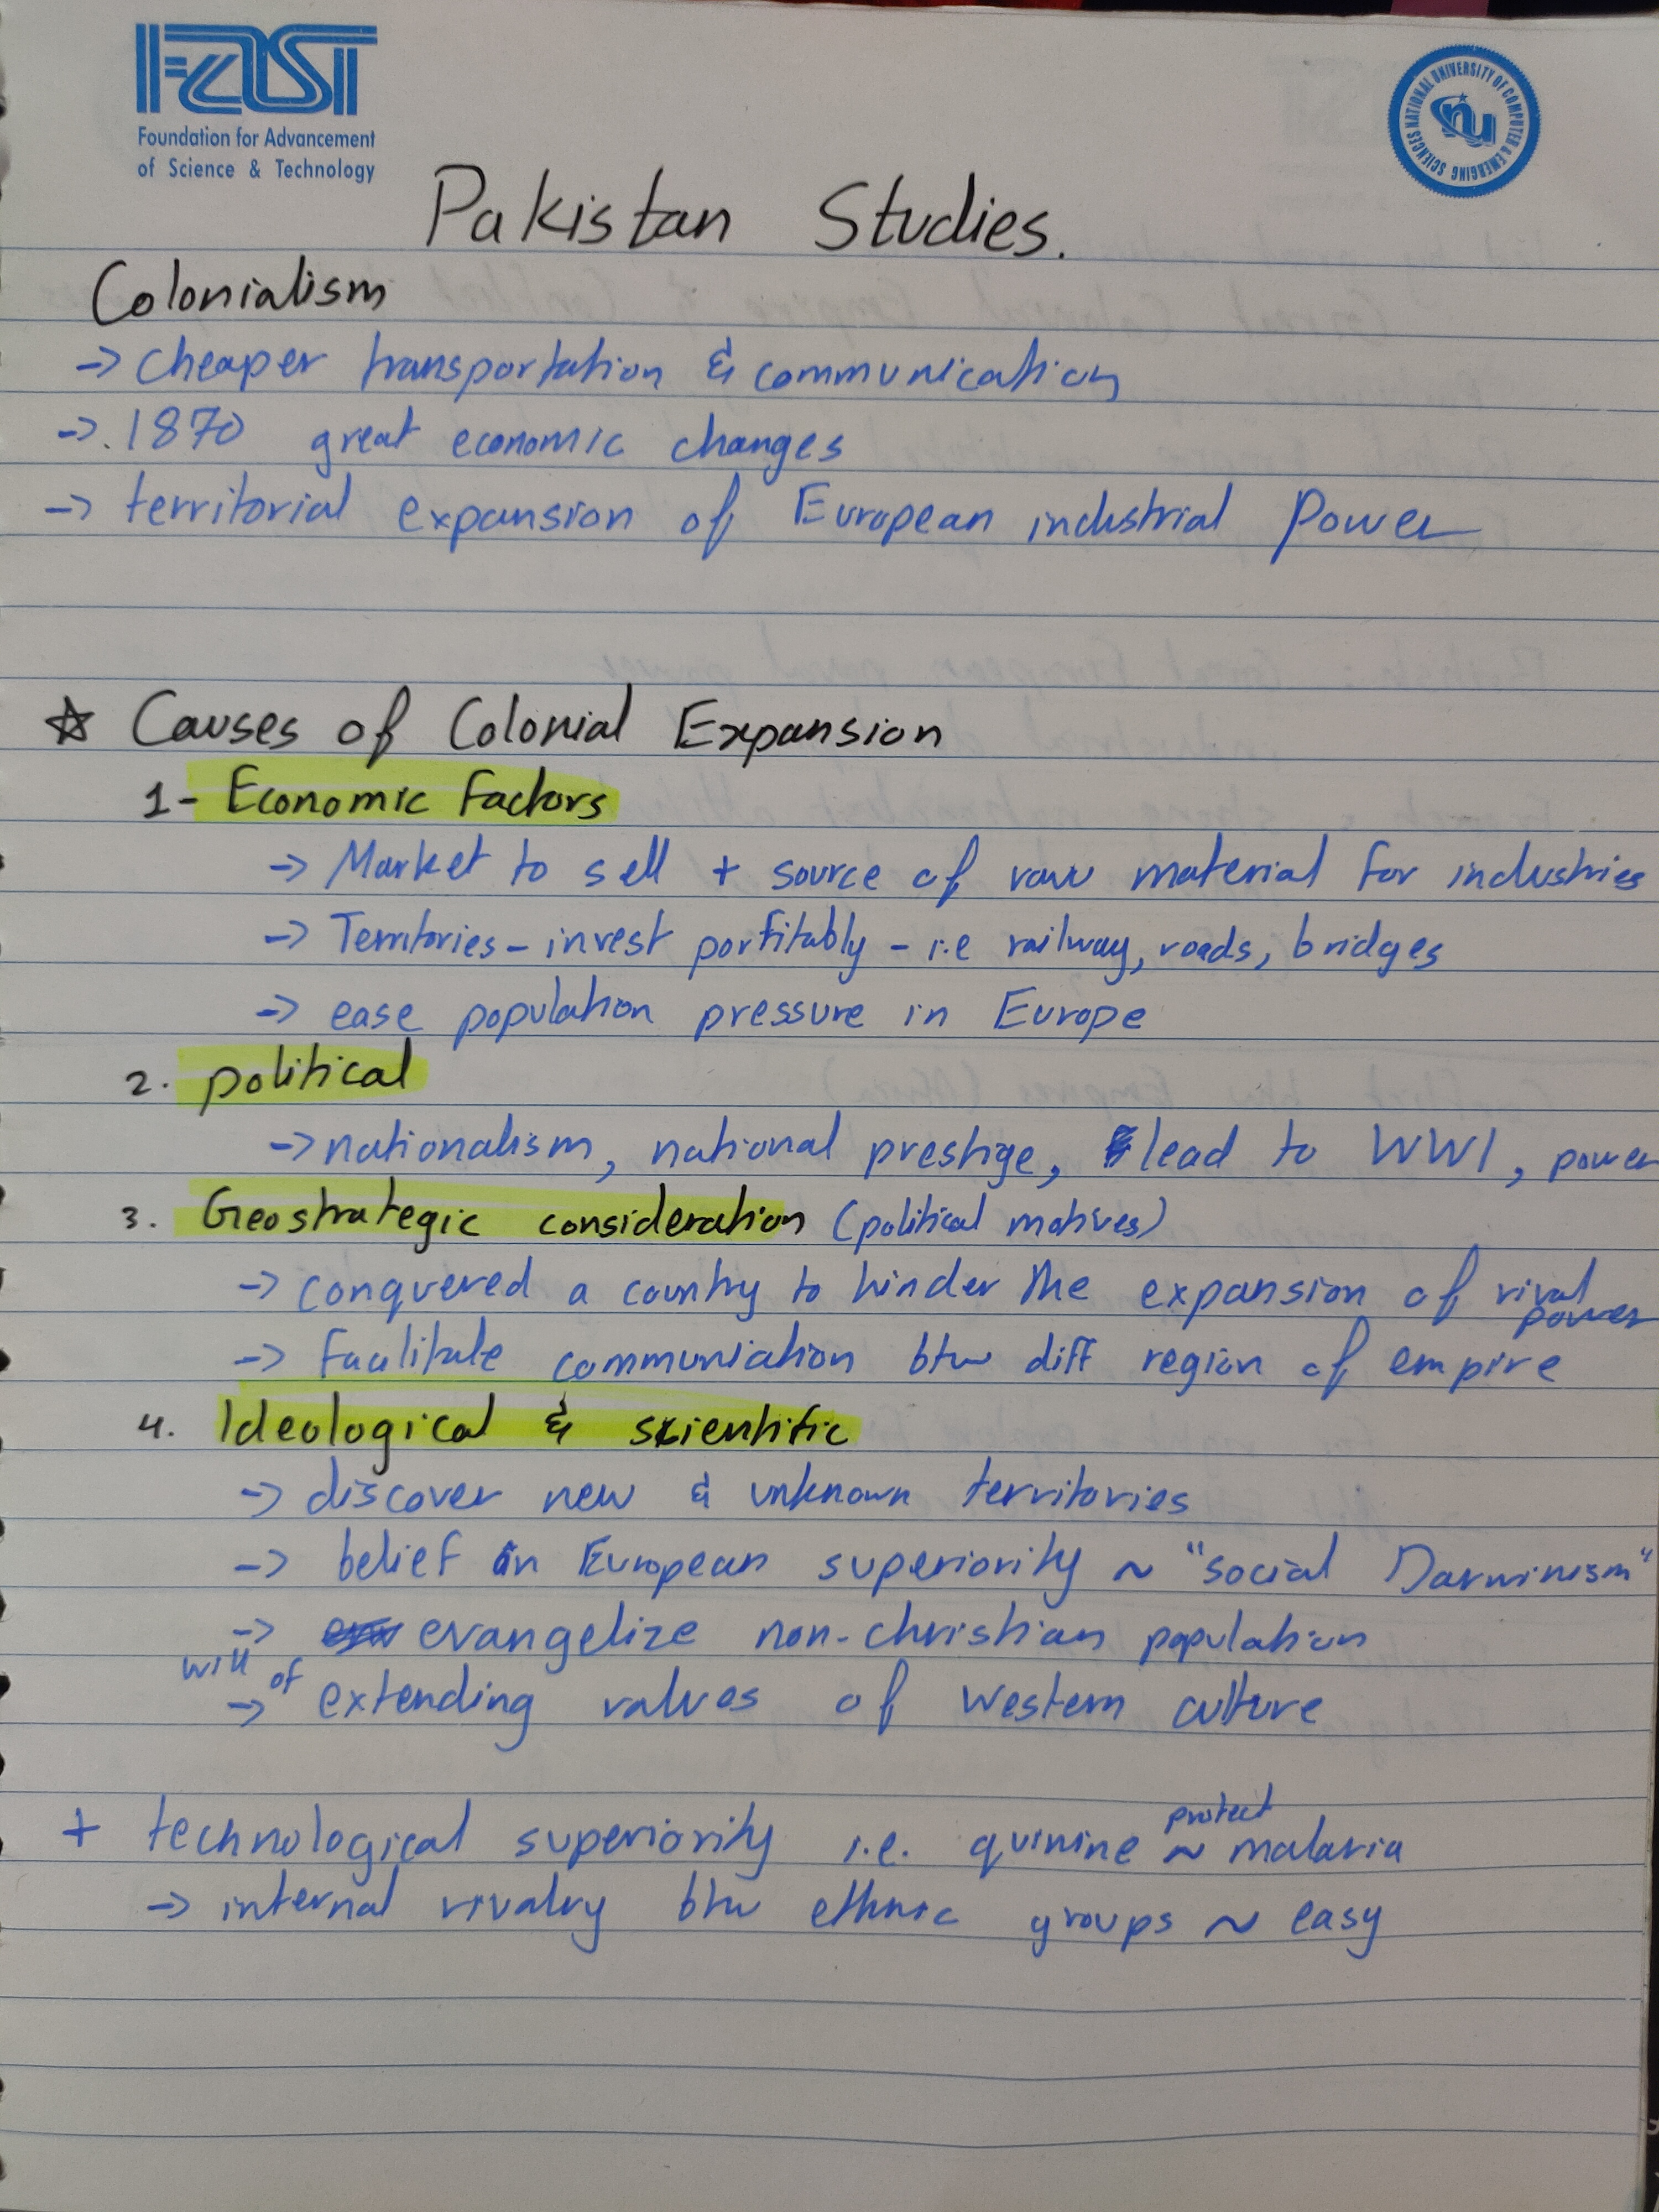 FAST
Foundation for Advancement
of Science & Technology
NATIONAL UNIVERSITY OF COMPUTER & EMERGING SCIENCES
nu
Pakistan Studies.
Colonialism
-> cheaper transportation & communication
->. 1870 great economic changes
-> territorial expansion of European industrial Power
☆ Causes of Colonial Expansion
1- Economic Factors
-> Market to sell + source of raw material for industries
-> Territories - invest porfitably - i.e railway, roads, bridges
-> ease population pressure in Europe
2. political
-> nationalism, national prestige, lead to WW1, power
3. Geostrategic consideration (political motives)
-> conquered a country to hinder the expansion of rival
power
-> facilitate communiation btw diff region of empire
4. Ideological & scientific
-> discover new & unknown territories
-> belief in European superiority ~ "social Darwinism"
-> evangelize non-christian population
will of
-> extending values of western culture
protect
+ technological superiority i.e. quinine ~ malaria
-> internal rivalry btw ethnic groups ~ easy